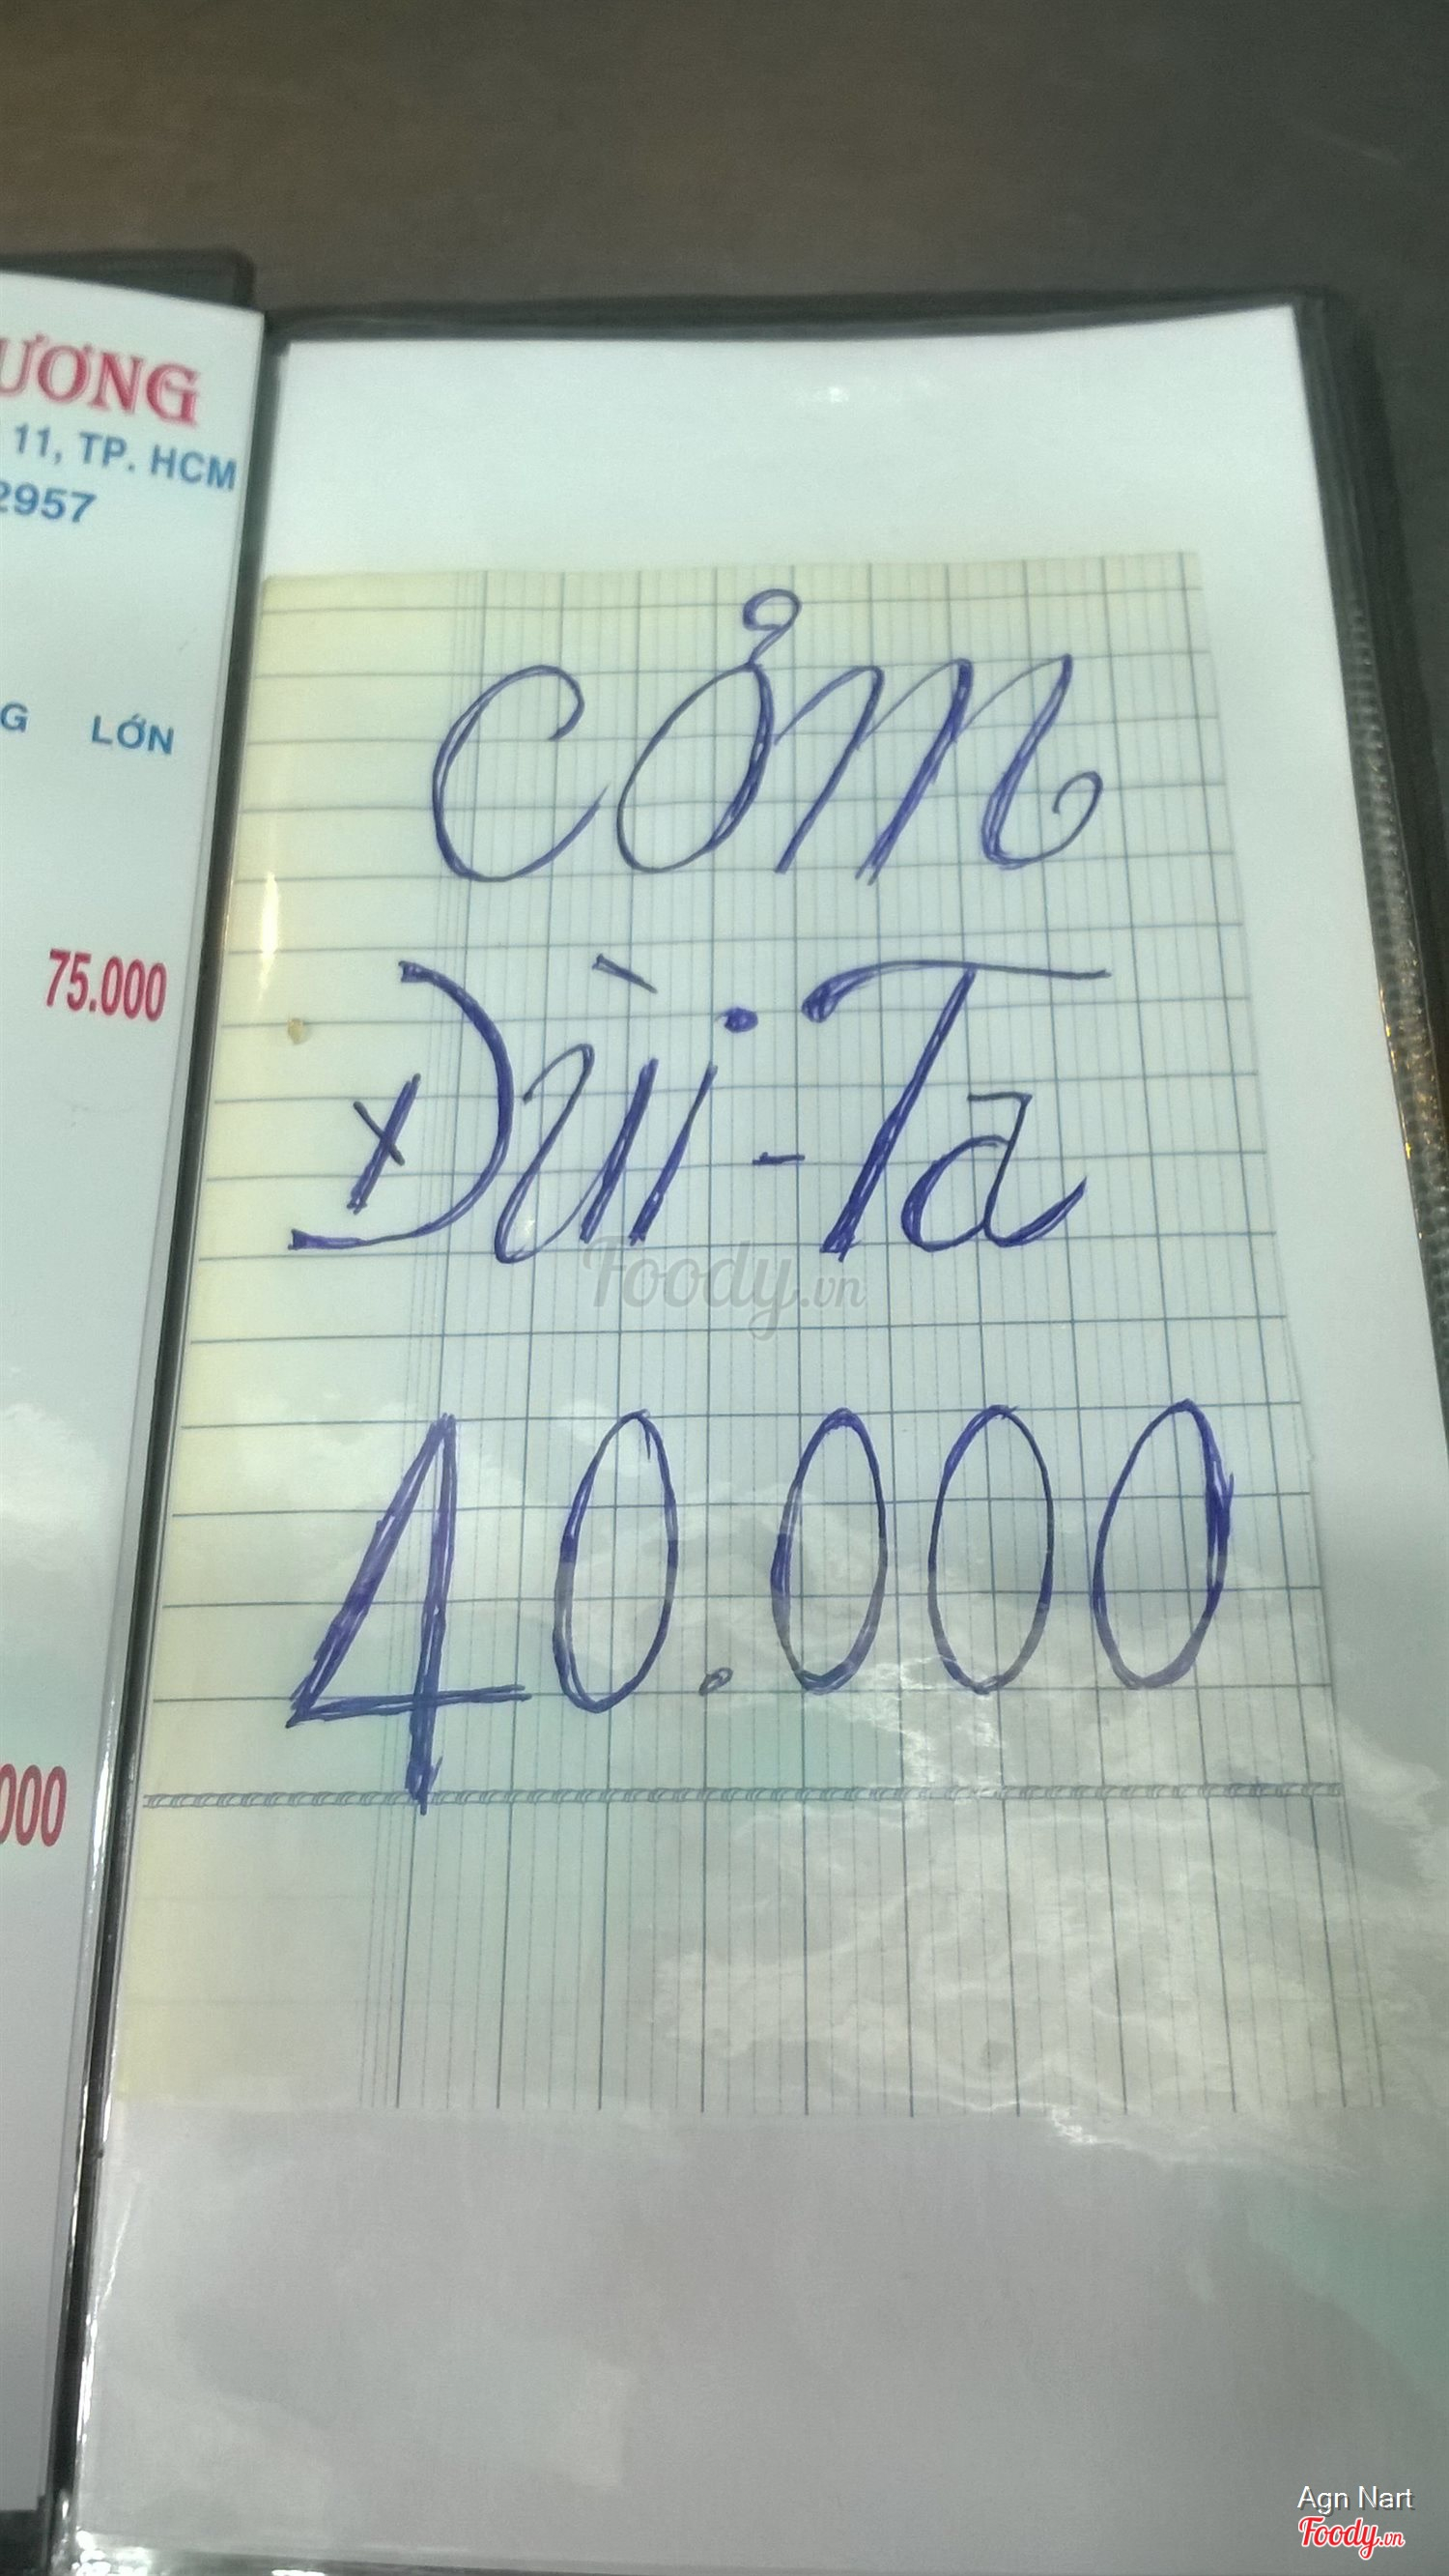 ƯƠNG
11, TP. HCM
2957
G LỚN
75.000
000
CƠM
Đùi-Ta
40.000
Foody.vn
Agn Nart
Foody.vn